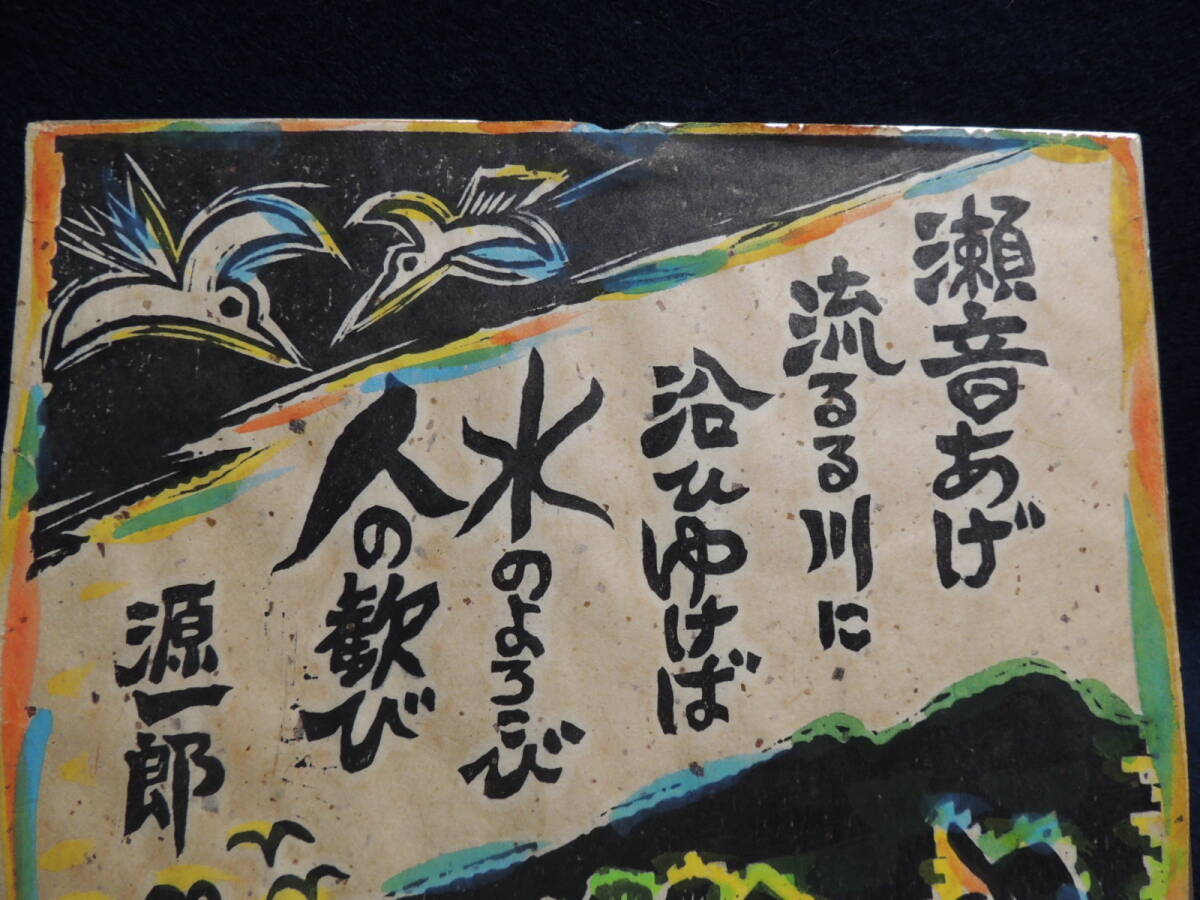 瀬音あげ
流るる川に
沿ひゆけば
水のよろこび
人の歓び
源一郎